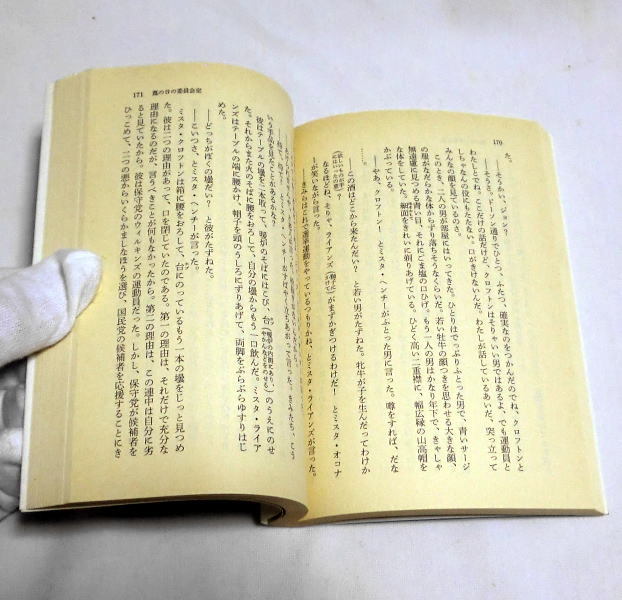 170
た。
――そうかい、ジョン？
――そうさ。ド―ド通りでひとつ、ふたつ、確実なのをつかんだのでね、クロフトンと
わたしとでね。ここだけの話だけど、クロフトンはそりゃいい男ではあるよ、でも運動員と
しちゃなんの役にもたたない。口がきけないんだ。わたしが話しているあいだ、突っ立って
みんなの顔を見ているのさ。
このとき、二人の男が部屋にはいってきた。ひとりはでっぷりふとった男で、青いサージ
の服がなだらかな体からずり落ちそうなくらいだ。若い牡牛の顔つきを思わせる大きな顔、
無遠慮に見つめる青い目、それにごま塩の口ひげ。もう一人の男はかなり年下で、きゃしゃ
な体をしていた。細面をきれいに剃りあげている。ひどく高い二重襟に、幅広縁の山高帽を
かぶっている。
――やあ、クロフトン！　とミスタ・ヘンチーがふとった男に言った。噂をすれば、だな
……。
――この酒はどこから来たんだい？　と若い男がたずねた。牝牛が子を生んだってわけか
なるほどね、そりゃ、ライアンズがまずかぎつけるわけだ！　とミスタ・オコナ
ーが笑いながら言った。
――きみらはこれで選挙運動をやっているつもりかね、とミスタ・ライアンズが言った。
171　蔦の日の委員会室
とミスタ・ヘンチーがすばやく立ちあがって言った。きみたち、こう
いう手品を見たことがあるかな？
彼はテーブルの壜を二本取って、煖炉のそばにはこび、台のうえにのせ
た。それからまた火のそばに腰をおろして、自分の壜からもう一口飲んだ。ミスタ・ライア
ンズはテーブルの端に腰かけ、帽子を頭のうしろにずりあげて、両脚をぶらぶらゆすりはじ
めた。
――どっちがぼくの壜だい？　と彼がたずねた。
――こいつさ、とミスタ・ヘンチーが言った。
ミスタ・クロフトンは箱に腰をおろして、台にのっているもう一本の壜をじっと見つめ
た。彼は二つの理由があって、口を閉じていたのである。第一の理由は、それだけで充分な
理由になるのだが、言うべきことが何もなかったから。第二の理由は、この連中は自分に劣
ると見ていたから。彼は保守党のウィルキンズの運動員だった。しかし、保守党が候補者を
ひっこめて、二つの悪からいくらかましなほうを選び、国民党の候補者を応援することにき